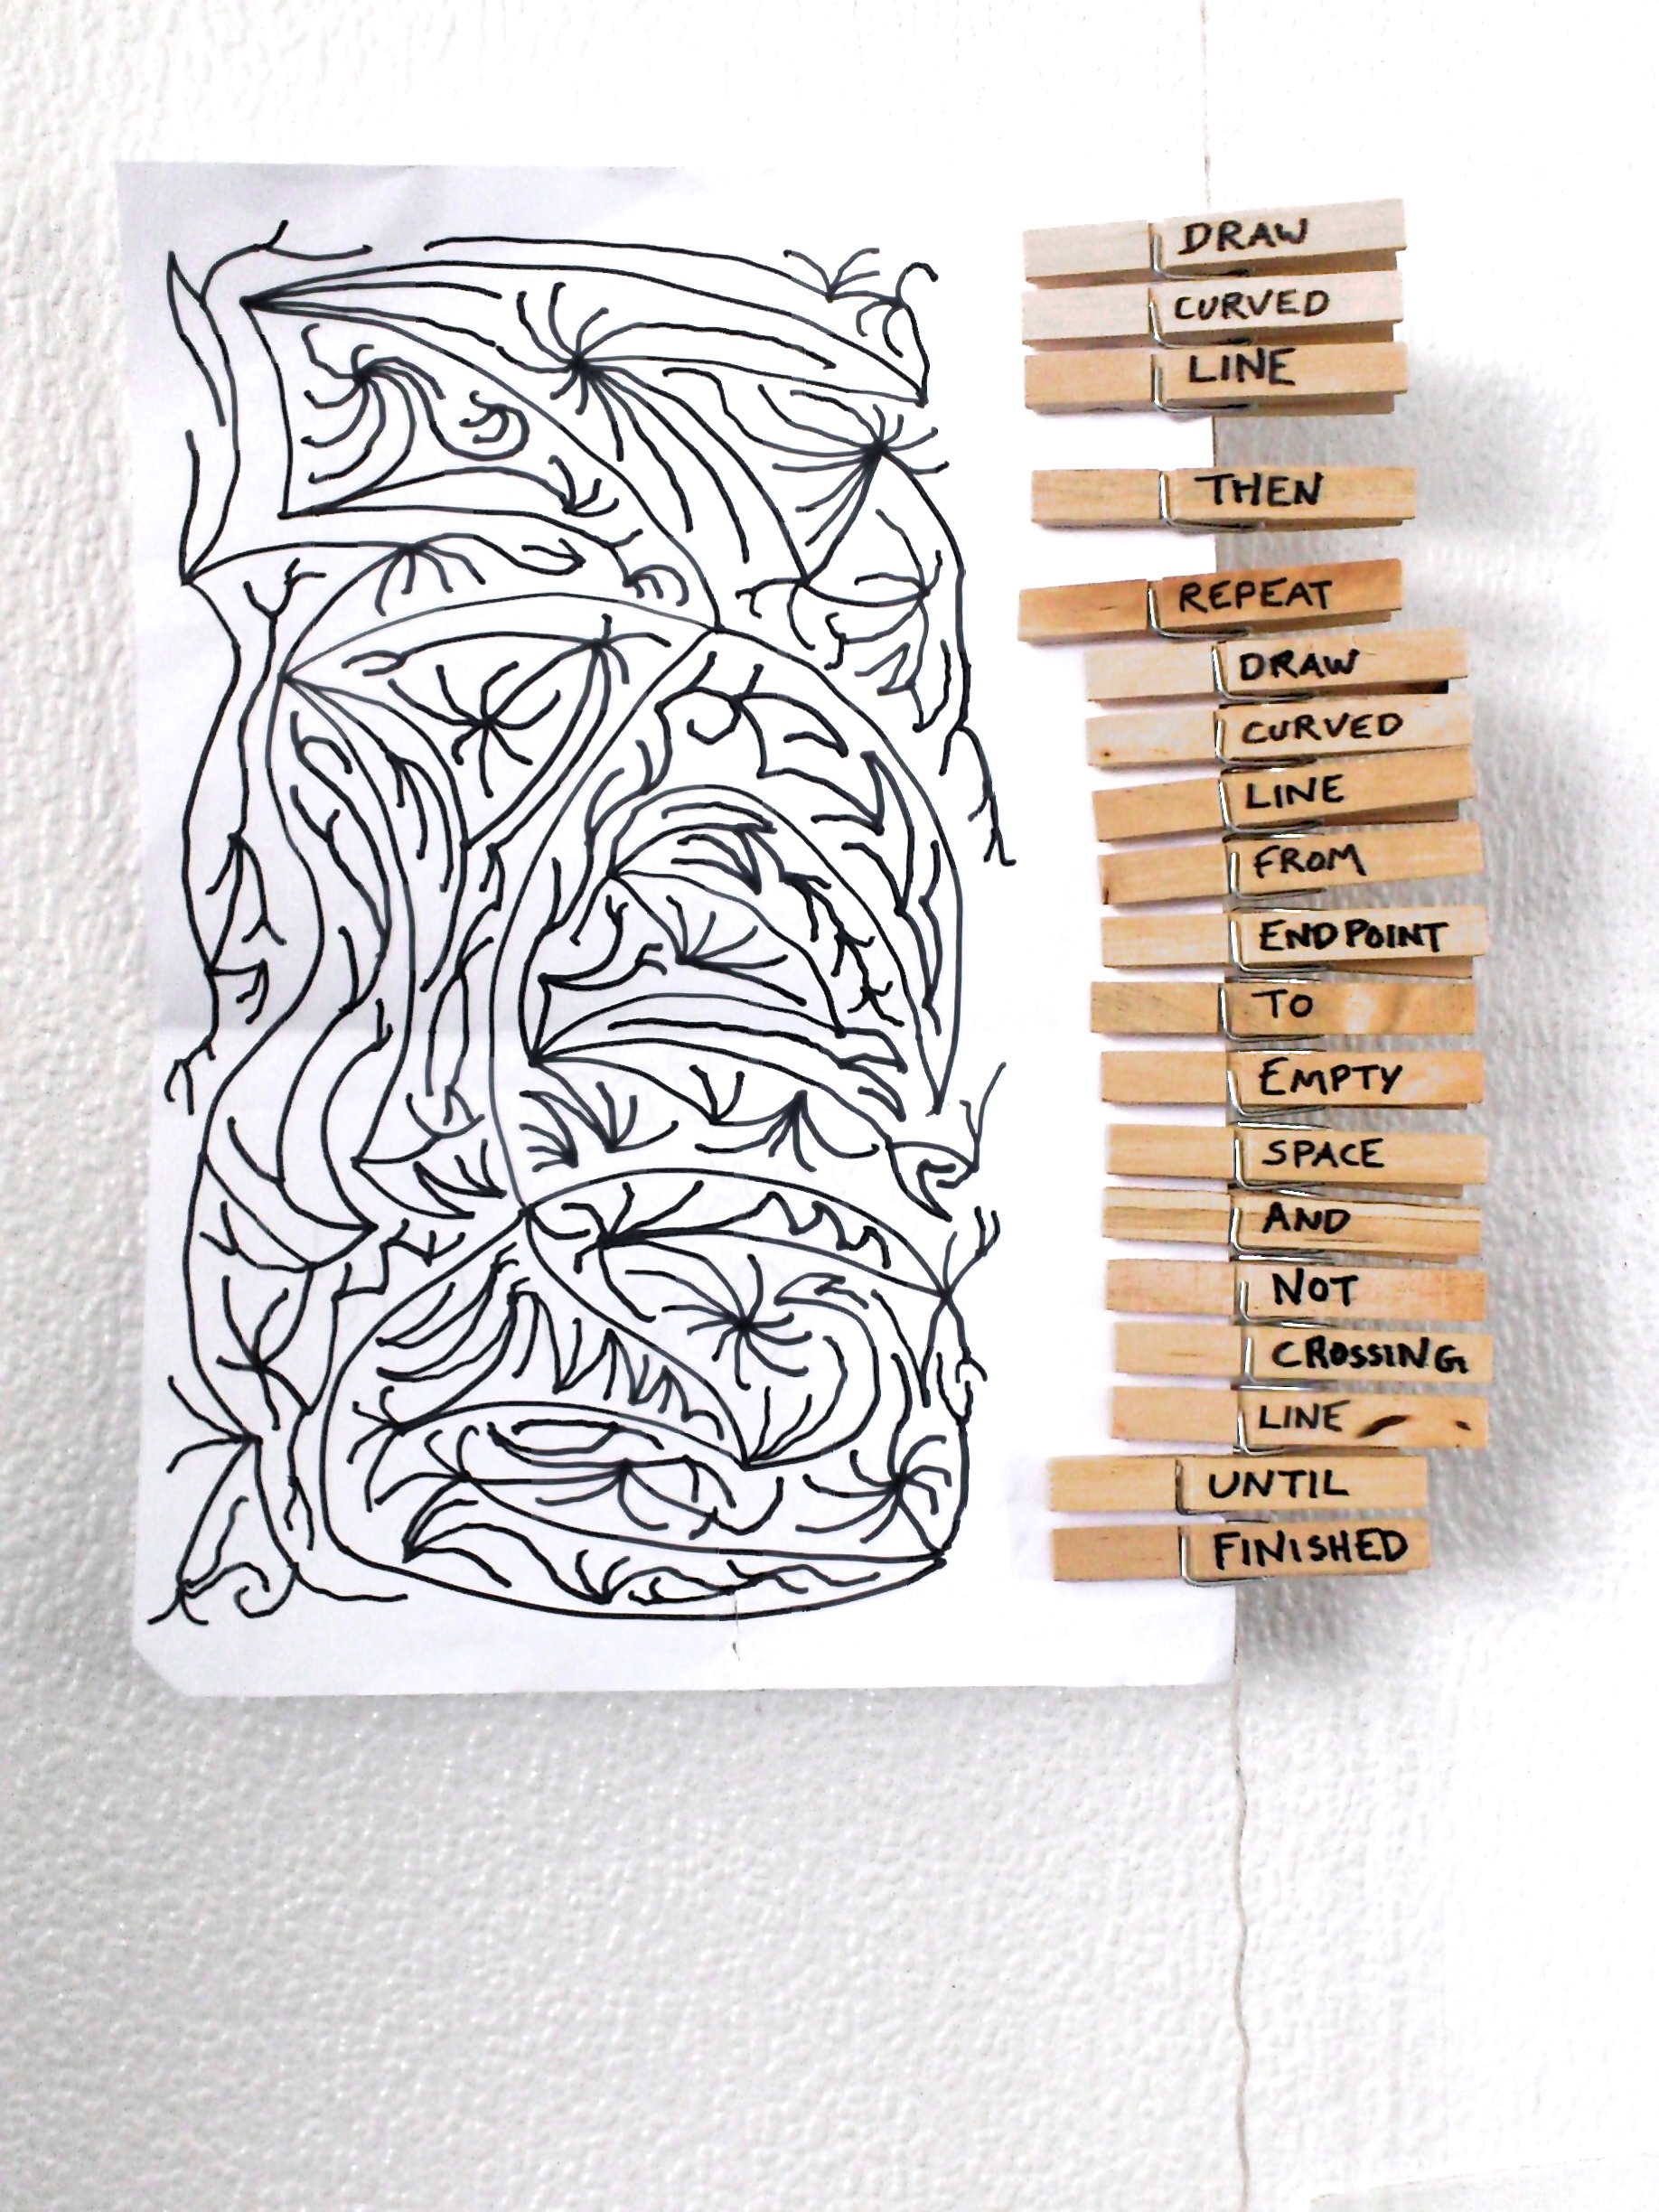 DRAW
CURVED
LINE
THEN
REPEAT
DRAW
CURVED
LINE
FROM
ENDPOINT
TO
EMPTY
SPACE
AND
NOT
CROSSING
LINE
UNTIL
FINISHED